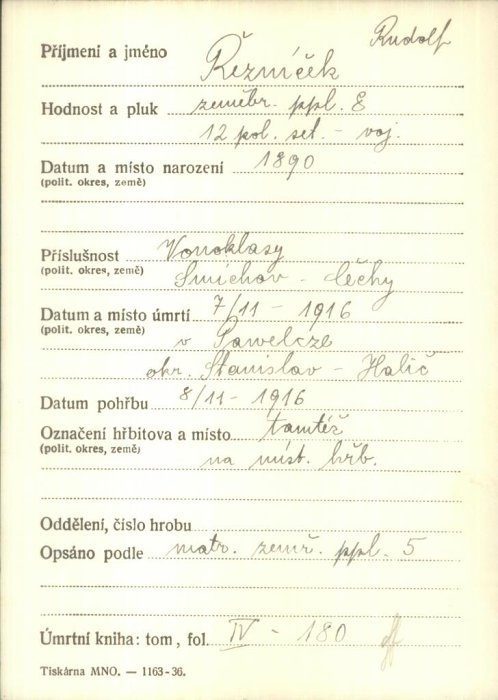 Rudolf
Příjmení a jméno Řezníček
Hodnost a pluk zeměbr. ppl. 8
12 pol. set. - voj.
Datum a místo narození 1890
(polit. okres, země)
Příslušnost Vonoklasy
(polit. okres, země) Smíchov - Čěchy
Datum a místo úmrtí 7/11 - 1916
(polit. okres, země) v Pawelcze
okr. Stanislav - Halič
Datum pohřbu 8/11 - 1916
Označení hřbitova a místo tamtéž
(polit. okres, země) na míst. hřb.
Oddělení, číslo hrobu
Opsáno podle matr. zemř. ppl. 5
Úmrtní kniha: tom, fol. IV - 180
Tiskárna MNO. — 1163-36.